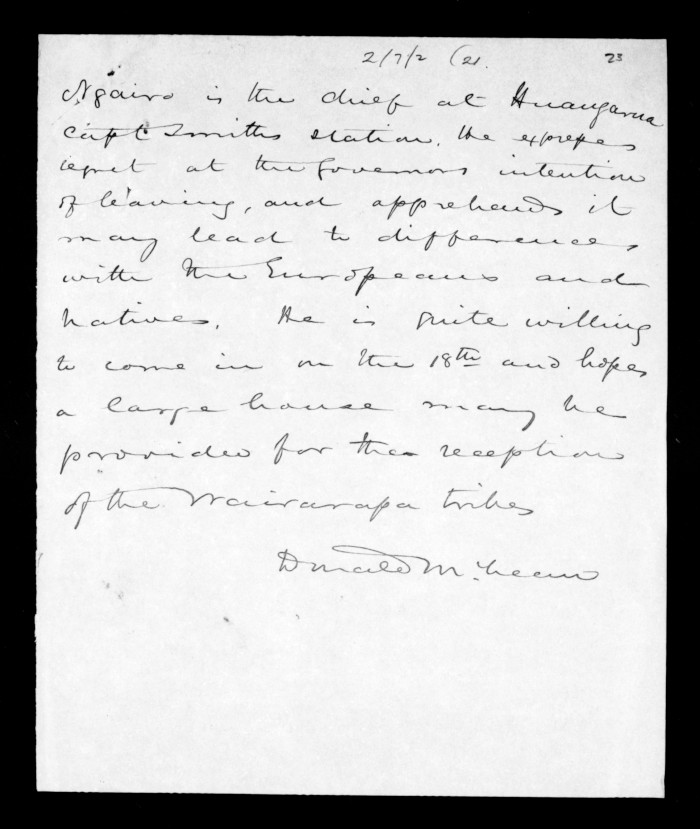 2/7/2 (21. 23
Ngairo is the chief at Huangarua
Capt Smiths station. He expresses
regret at the Governors intention
of leaving, and apprehends it
may lead to differences
with the Europeans and
natives. He is quite willing
to come in on the 18th and hopes
a large house may be
provided for the reception
of the Wairarapa tribes
Donald McLean